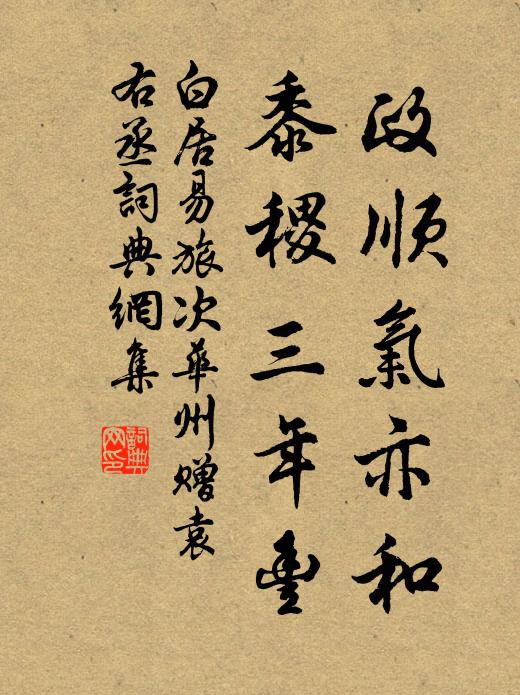 政順氣亦和
黍稷三年豐
白居易旅次華州贈袁
右丞詞典網集
詞典
网印